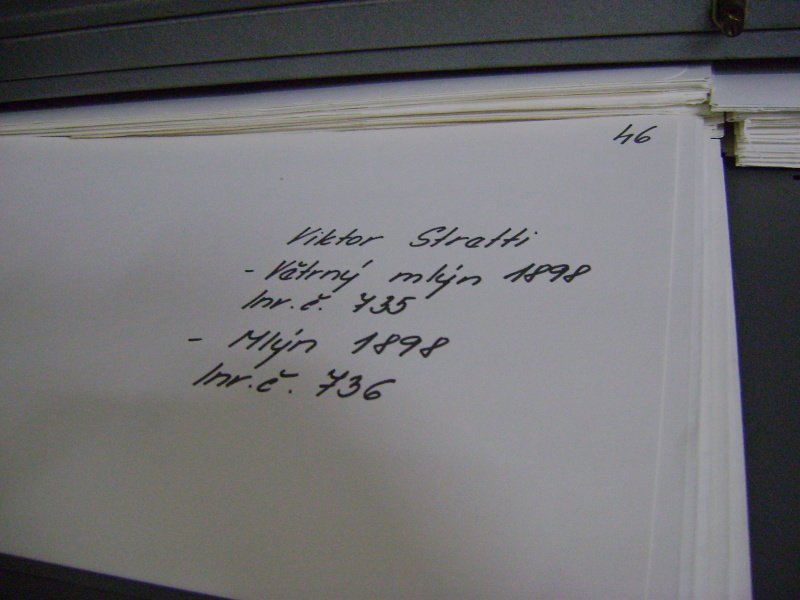 46
Viktor Stratti
- Větrný mlýn 1898
Inv.č. 735
- Mlýn 1898
Inv.č. 736